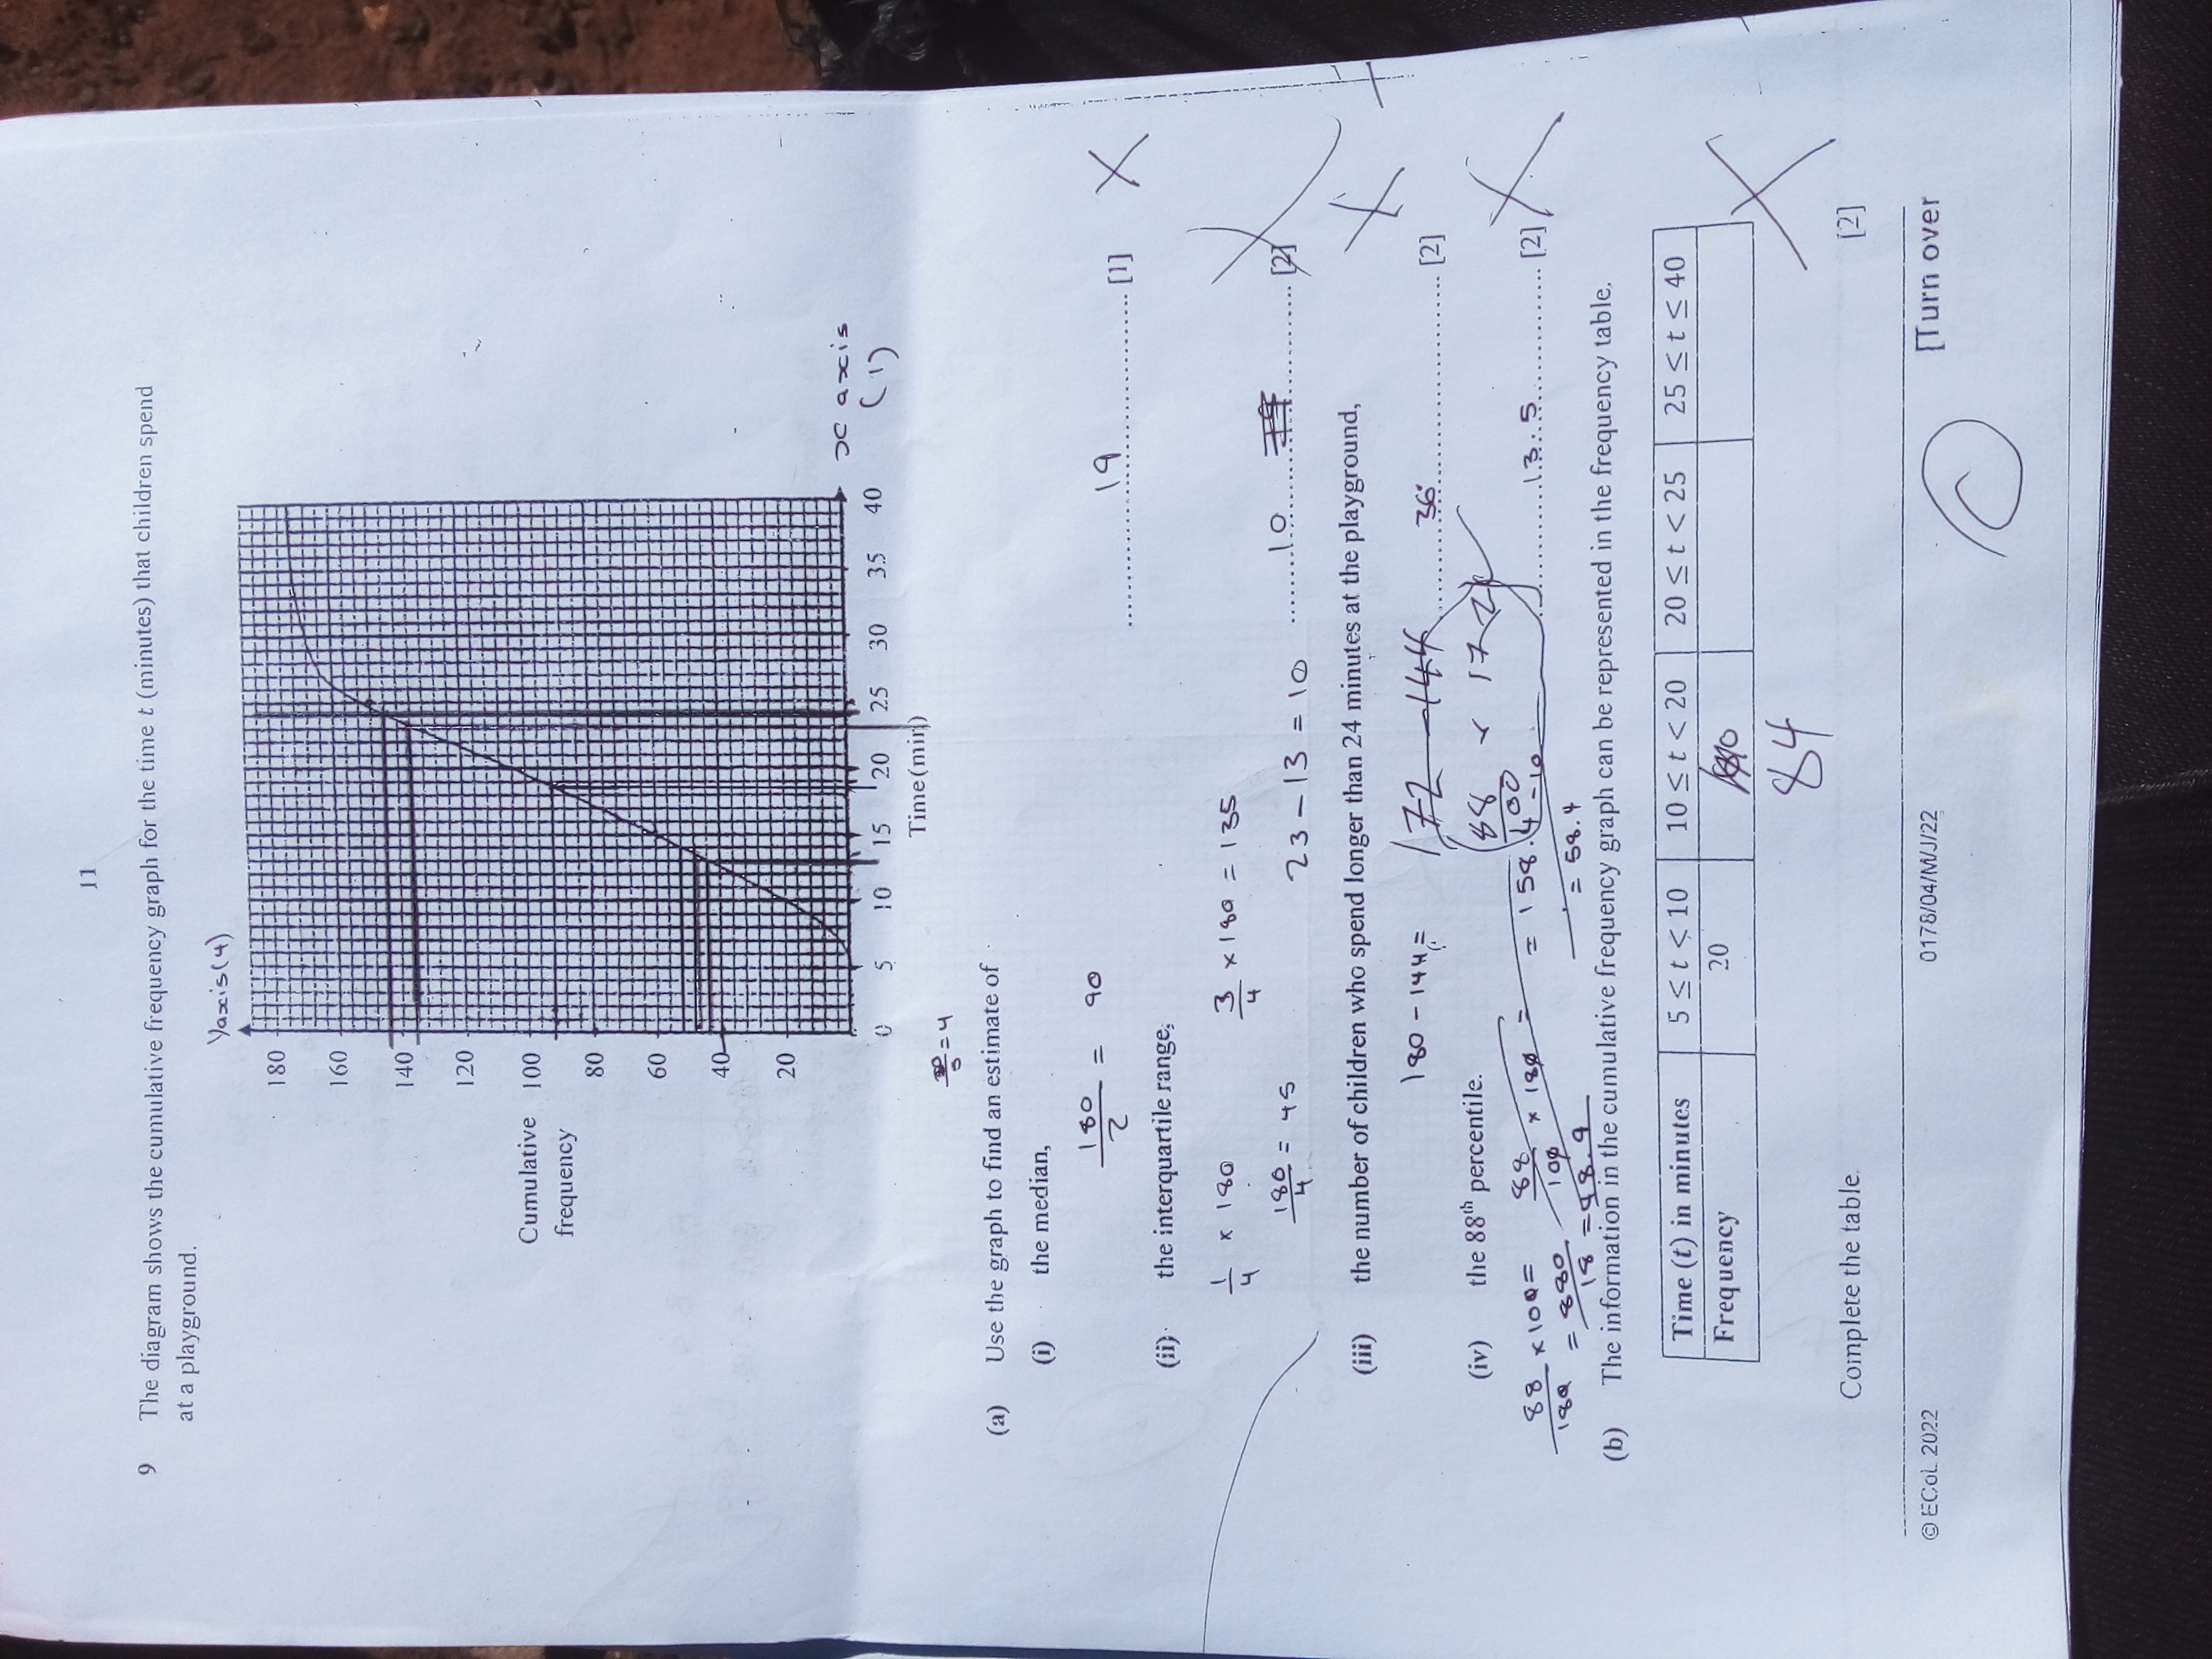 11
9 The diagram shows the cumulative frequency graph for the time t (minutes) that children spend
at a playground.
Yaxis(4)
180
160
140
120
Cumulative 100
frequency
80
60
40
20
x axis
0 5 10 15 20 25 30 35 40 (1)
Time (min)
= 4
(a) Use the graph to find an estimate of
(i) the median,
180/2 = 90
19 [1]
(ii) the interquartile range,
1/4 × 180 3/4 × 180 = 135
180/4 = 45 23 – 13 = 10 10 [2]
(iii) the number of children who spend longer than 24 minutes at the playground,
180 – 144 = 172 – 144 36 [2]
(iv) the 88th percentile.
88/100 × 172
88/180 × 100 = 88/100 × 180 = = 158.4 – 10 13.5 [2]
= 880/18 = 48.9 = 58.4
(b) The information in the cumulative frequency graph can be represented in the frequency table.
Time (t) in minutes 5 ≤ t < 10 10 ≤ t < 20 20 ≤ t < 25 25 ≤ t ≤ 40
Frequency 20
84
Complete the table. [2]
© ECoL 2022 0178/04/M/J/22 [Turn over